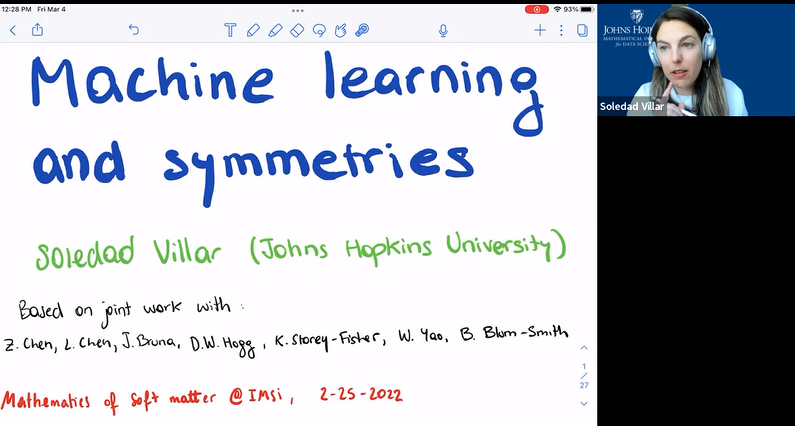 12:28 PM Fri Mar 4
93%
JOHNS HOP
MATHEMATICAL IN
for DATA SCIE
Soledad Villar
Machine learning
and symmetries
Soledad Villar (Johns Hopkins University)
Based on joint work with :
Z. Chen, L. Chen, J. Bruna, D.W. Hogg, K. Storey-Fisher, W. Yao, B. Blum-Smith
Mathematics of Soft matter @ IMSi, 2-25-2022
1
/
27